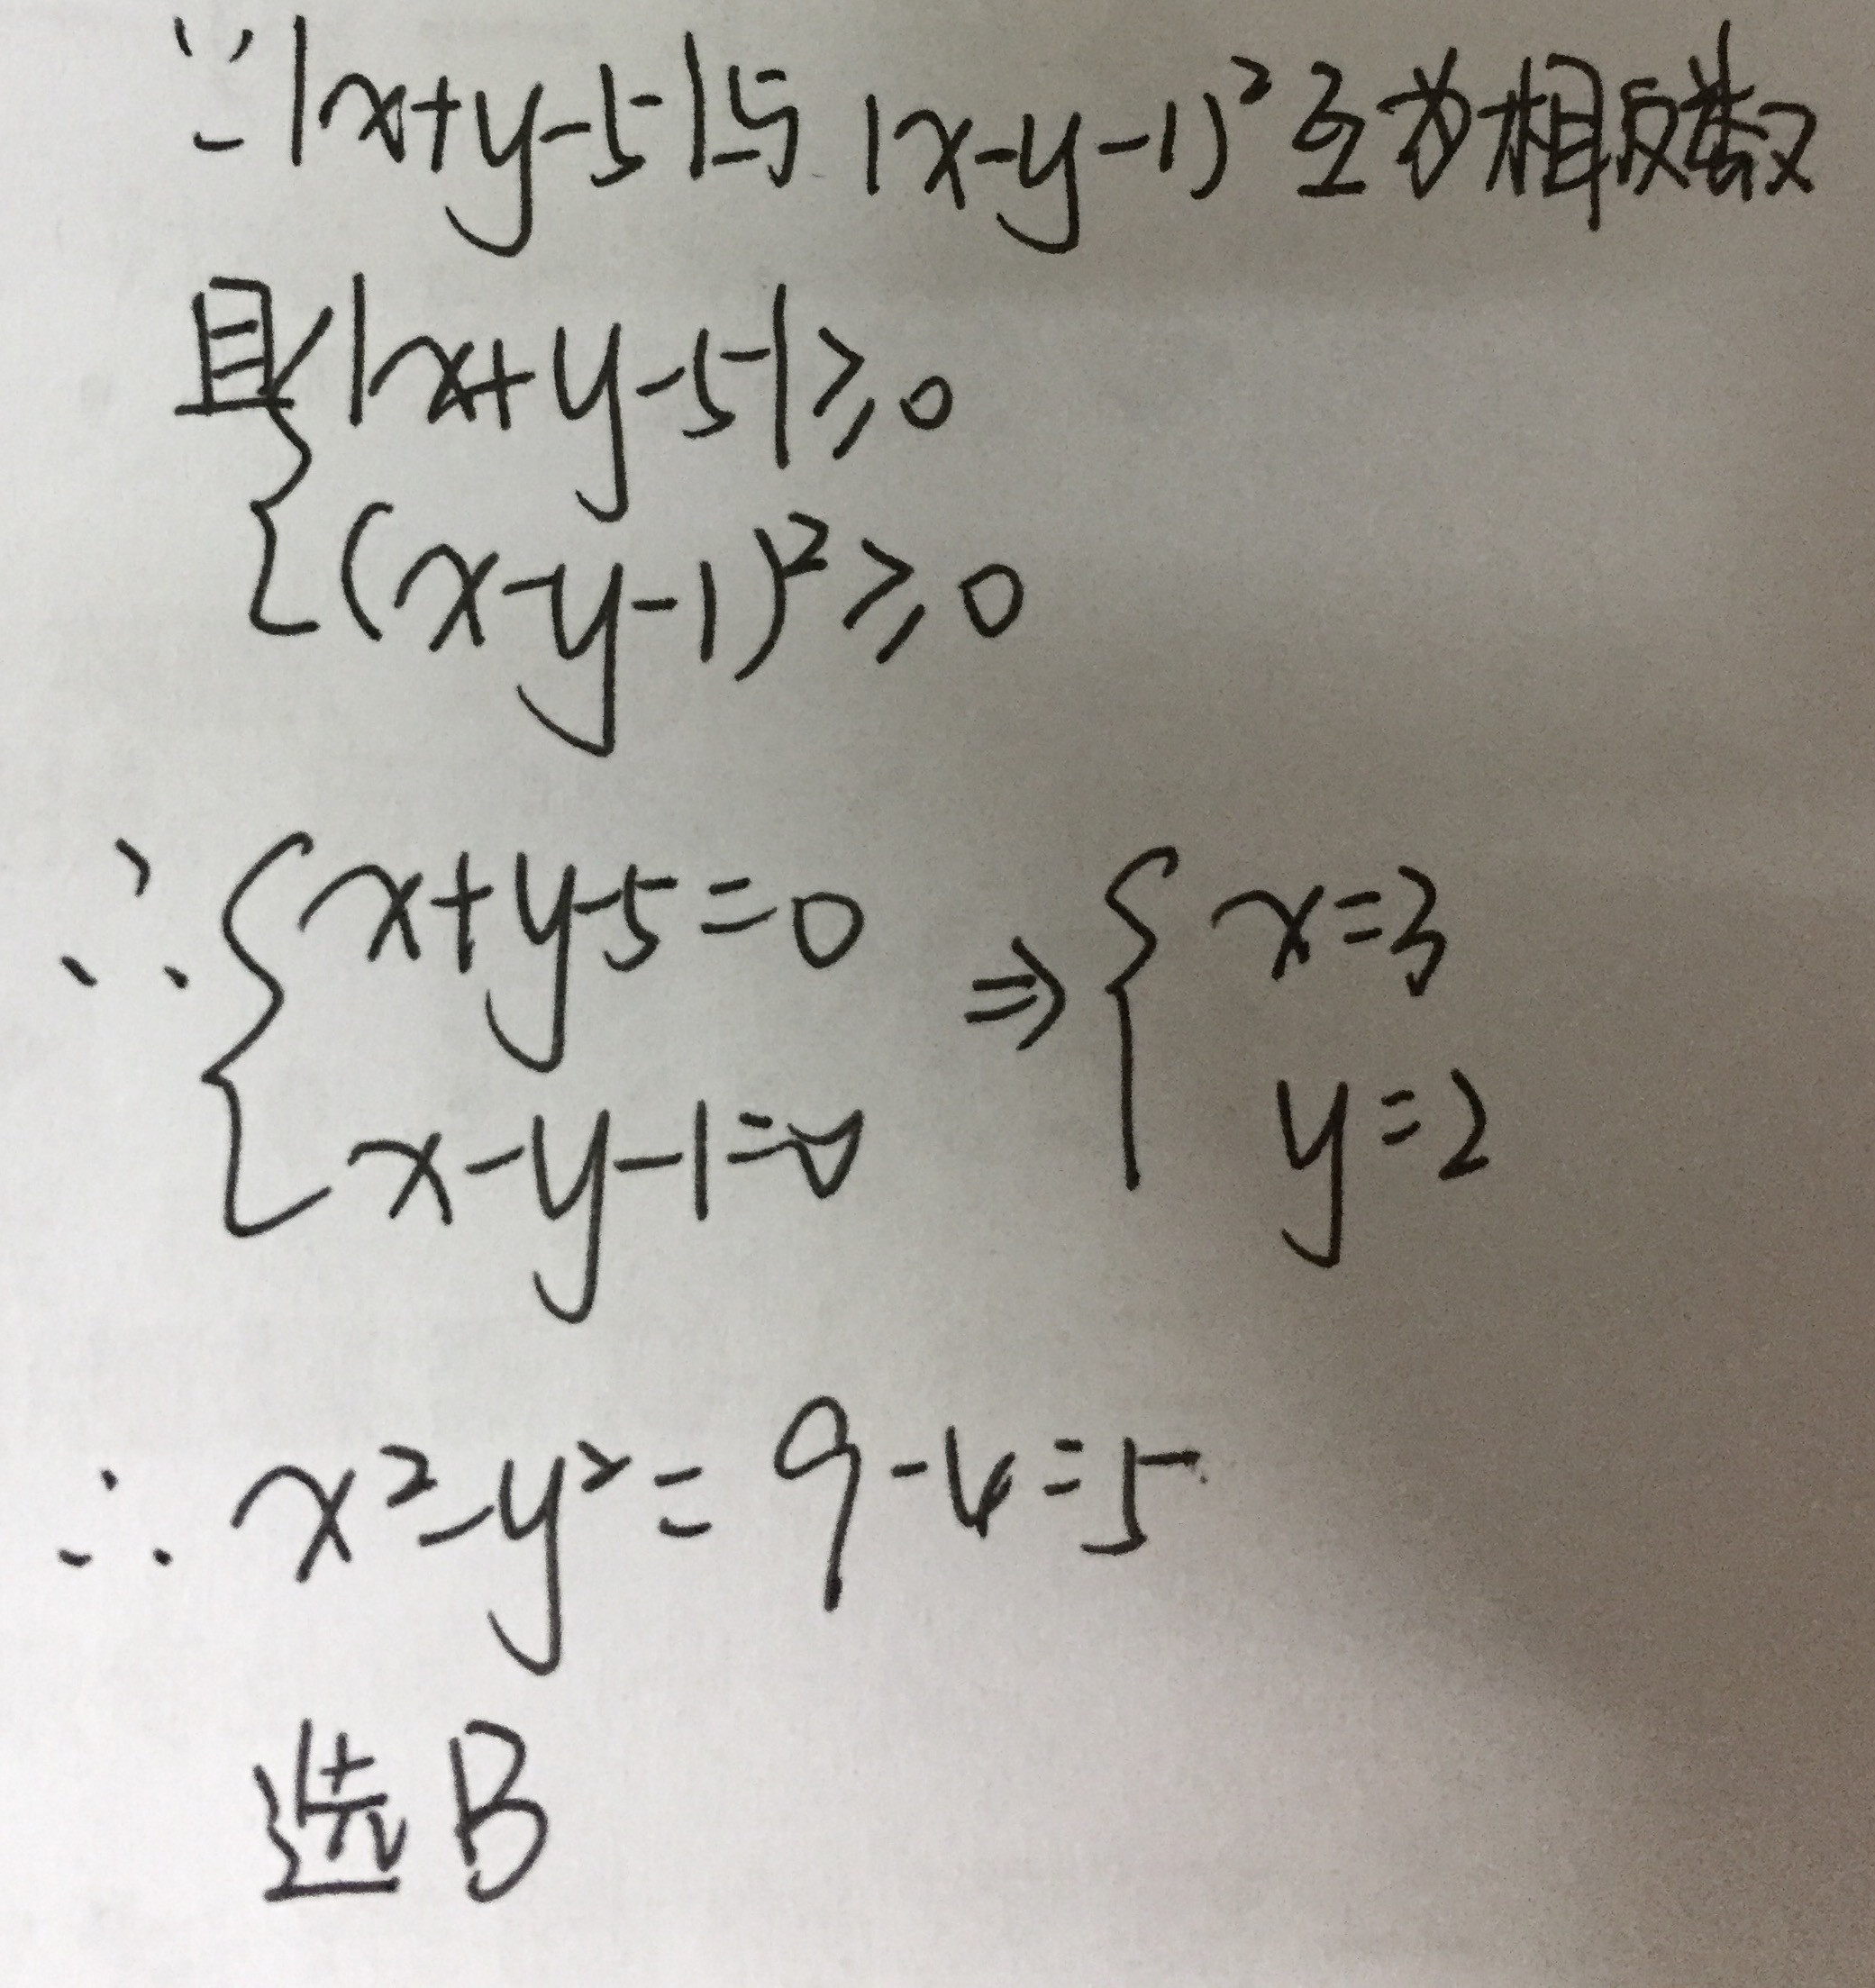 ∵|x+y-5|与(x-y-1)²互为相反数
且{|x+y-5|≥0
(x-y-1)²≥0
∴{x+y-5=0 ⇒ {x=3
x-y-1=0 y=2
∴x²-y²=9-4=5
选B